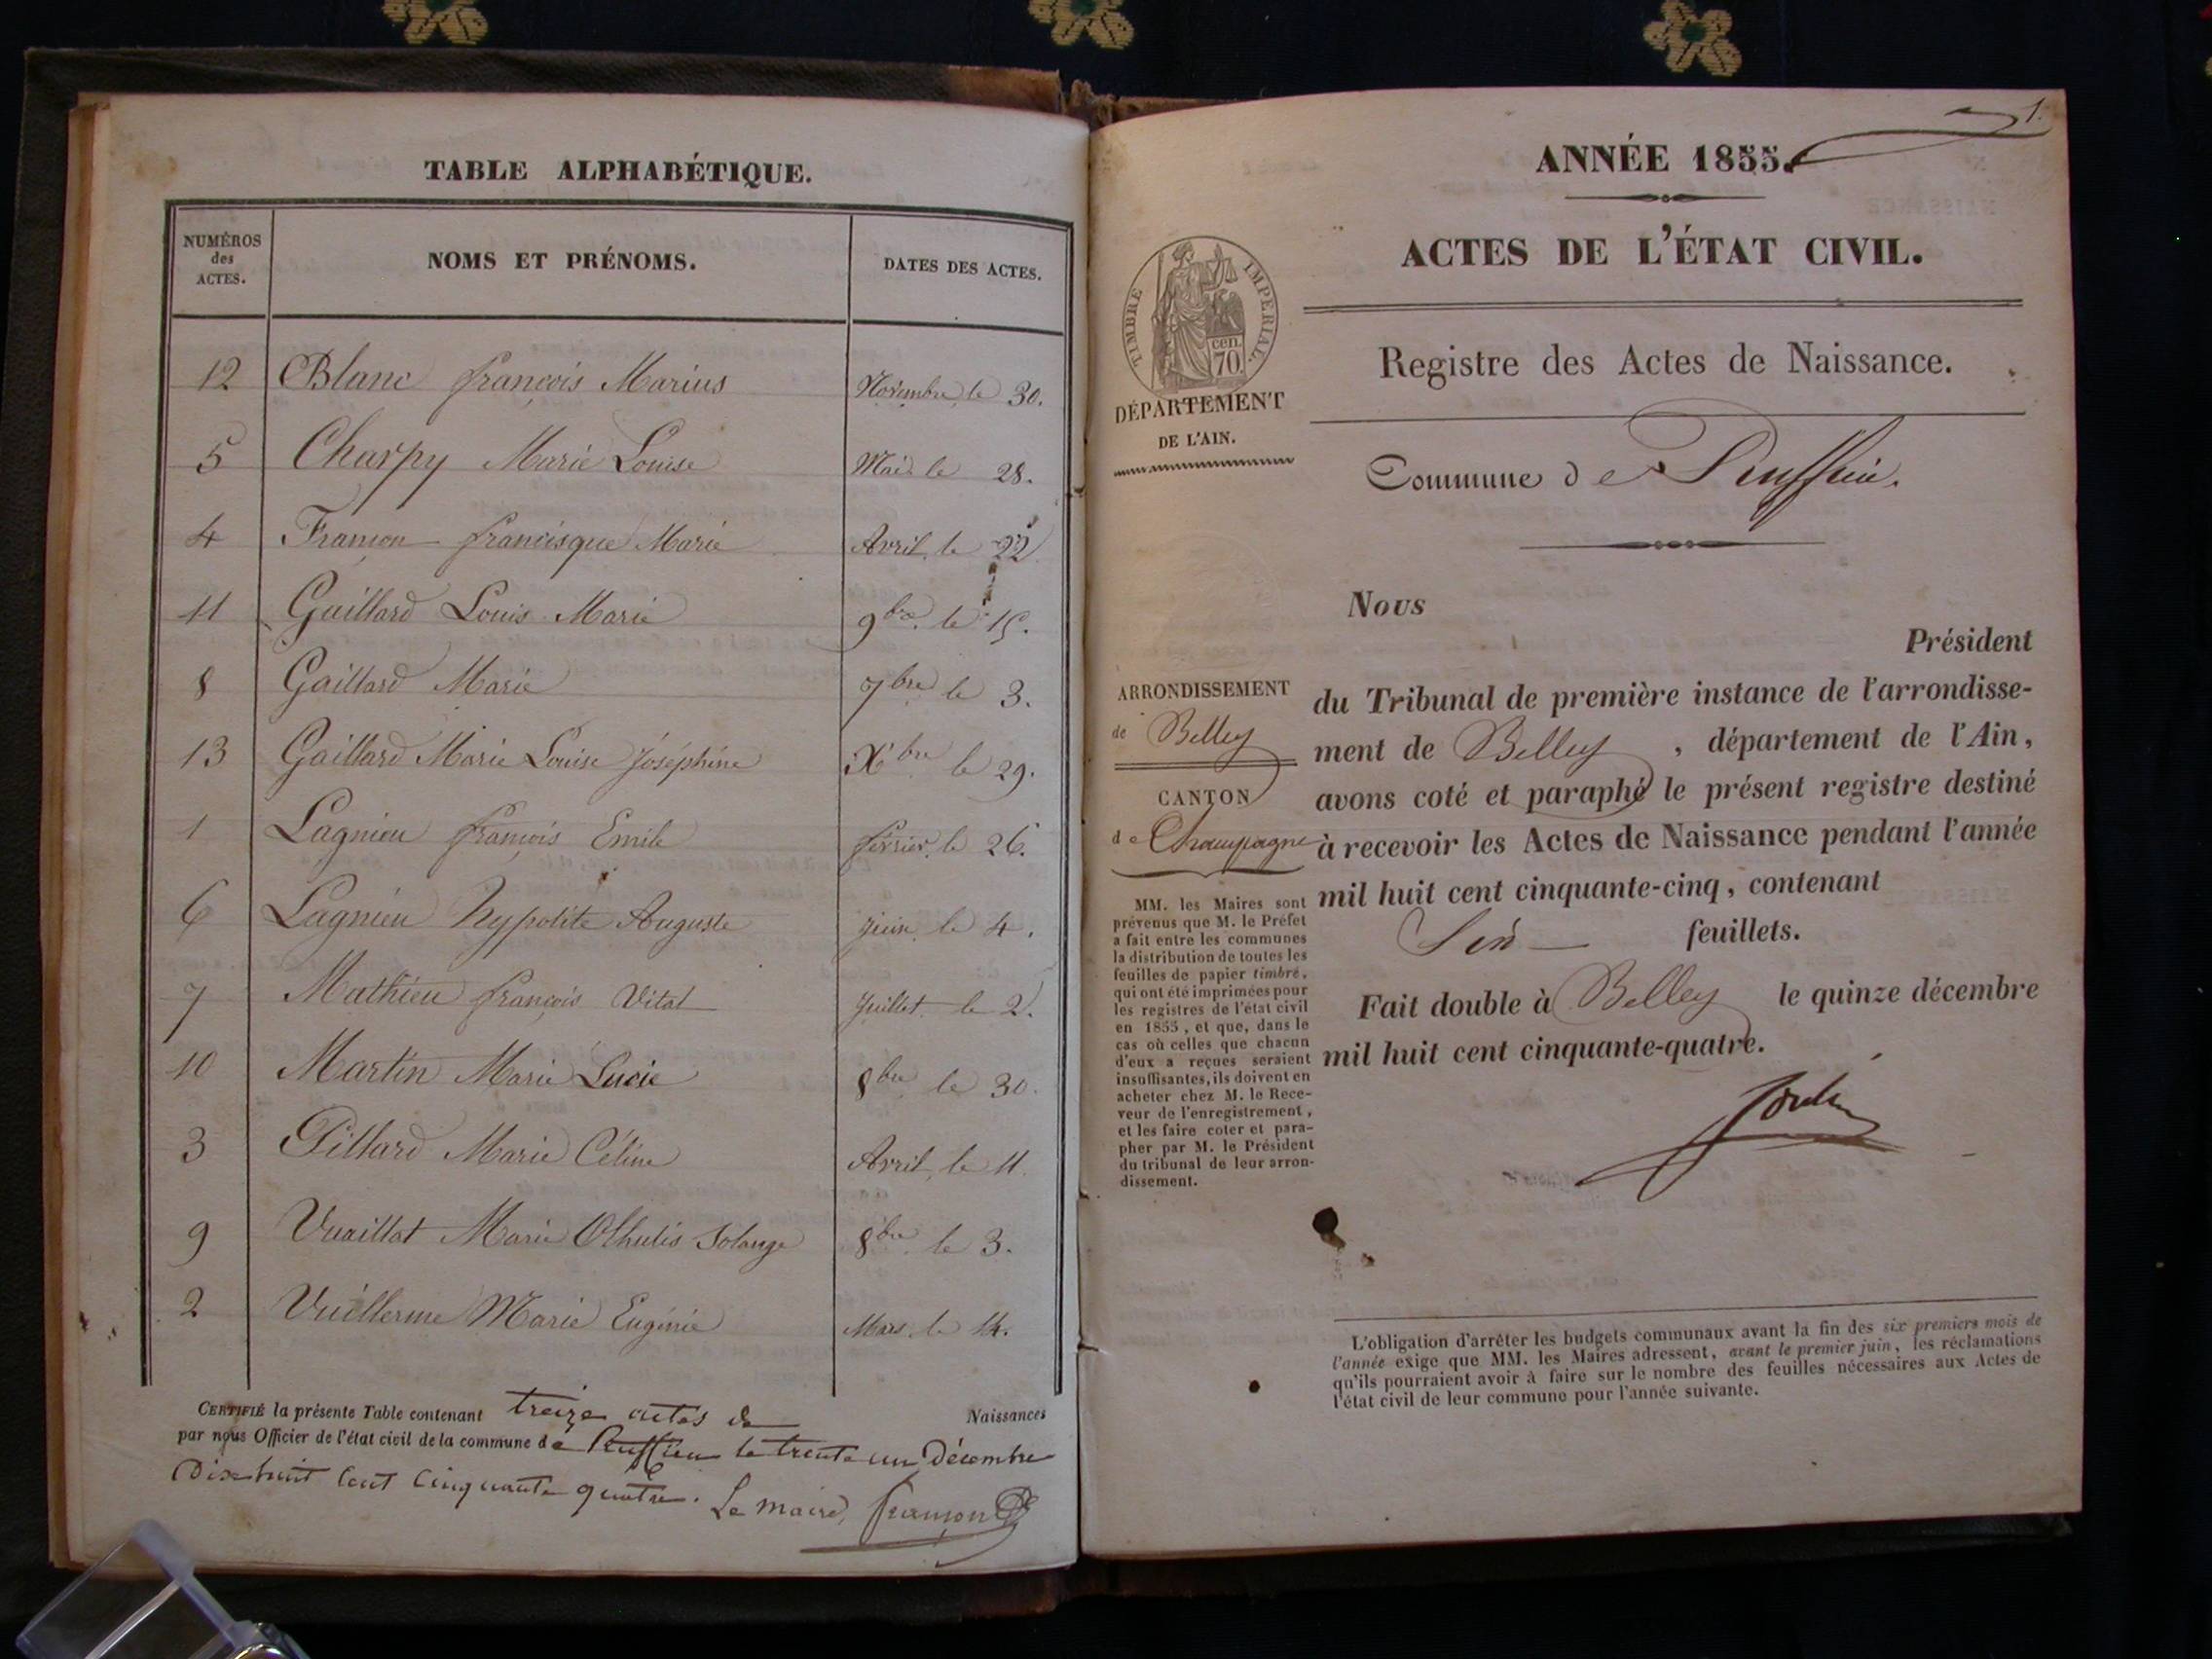 TABLE ALPHABÉTIQUE.
NUMÉROS des ACTES.
NOMS ET PRÉNOMS.
DATES DES ACTES.
12 Blanc françois Marius Novembre le 30.
5 Charpy Marie Louise Mai le 28.
4 Françon francisque Marie Avril le 22
11 Gaillard Louis Marie 9bre le 15.
8 Gaillard Marie 7bre le 3.
13 Gaillard Marie Louise Joséphine Xbre le 29.
1 Lagnieu françois Emile février le 26.
6 Lagnieu hypolite Auguste Juin le 4.
7 Mathieu françois Vital Juillet le 2.
10 Martin Marie Lucie 8bre le 30.
3 Pillard Marie Céline Avril, le 11.
9 Vuaillat Marie Solange 8bre le 3.
2 Vuillerme Marie Eugénie Mars le 14.
CERTIFIÉ la présente Table contenant treize actes de Naissances
par nous Officier de l'état civil de la commune de Ruffieu le trente un Décembre
Dix huit Cent Cinquante quatre. Le maire, françon
1.
ANNÉE 1855.
ACTES DE L'ÉTAT CIVIL.
Registre des Actes de Naissance.
TIMBRE IMPERIAL.
cen.
70.
DÉPARTEMENT
DE L'AIN.
Commune de Ruffieu.
ARRONDISSEMENT
de Belley
CANTON
de Champagne
MM. les Maires sont
prévenus que M. le Préfet
a fait entre les communes
la distribution de toutes les
feuilles de papier timbré,
qui ont été imprimées pour
les registres de l'état civil
en 1855, et que, dans le
cas où celles que chacun
d'eux a reçues seraient
insuffisantes, ils doivent en
acheter chez M. le Rece-
veur de l'enregistrement,
et les faire coter et para-
pher par M. le Président
du tribunal de leur arron-
dissement.
Nous
Président
du Tribunal de première instance de l'arrondisse-
ment de Belley, département de l'Ain,
avons coté et paraphé le présent registre destiné
à recevoir les Actes de Naissance pendant l'année
mil huit cent cinquante-cinq, contenant
Six feuillets.
Fait double à Belley le quinze décembre
mil huit cent cinquante-quatre.
L'obligation d'arrêter les budgets communaux avant la fin des six premiers mois de
l'année exige que MM. les Maires adressent, avant le premier juin, les réclamations
qu'ils pourraient avoir à faire sur le nombre des feuilles nécessaires aux Actes de
l'état civil de leur commune pour l'année suivante.